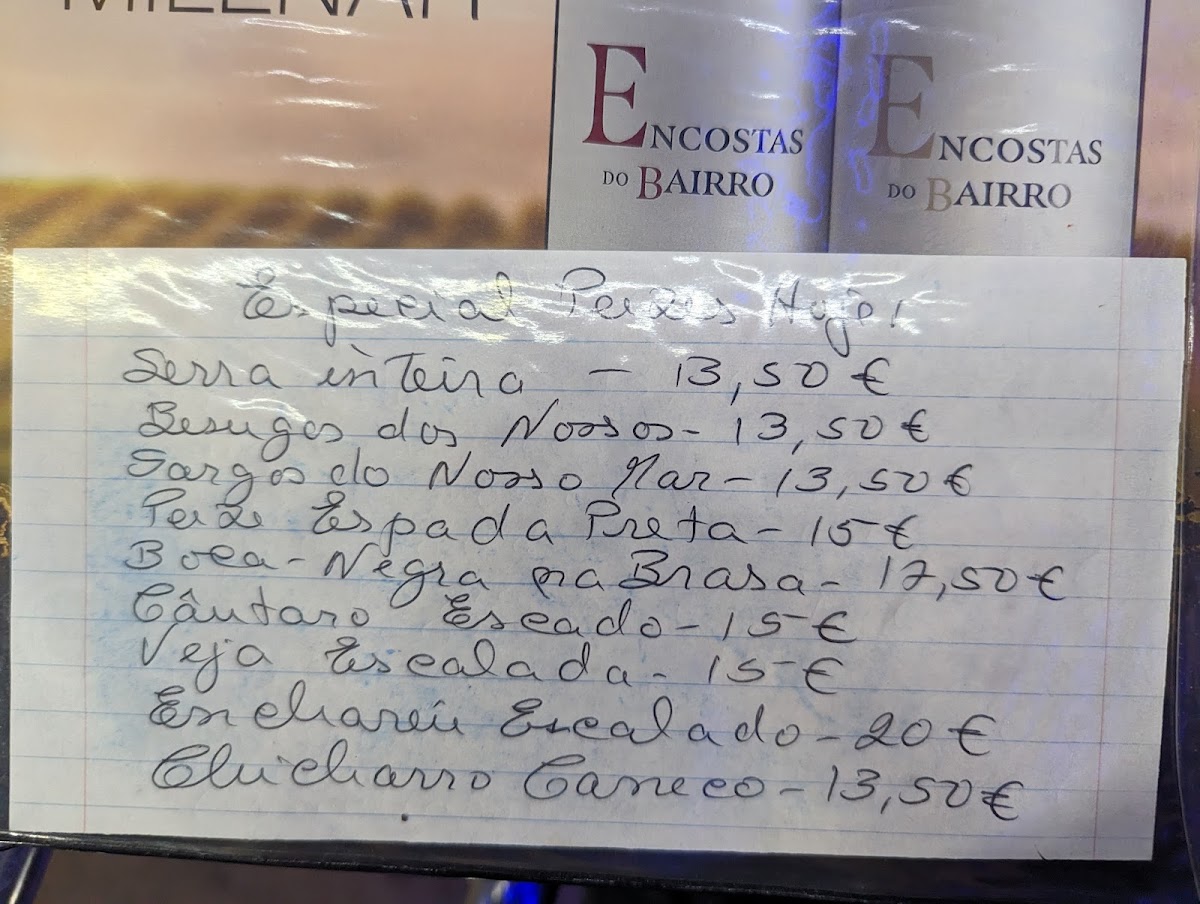 MILENAR
ENCOSTAS
DO BAIRRO
ENCOSTAS
DO BAIRRO
Especial Peixes Hoje!
Serra inteira - 13,50 €
Besugos dos Nossos - 13,50 €
Sargos do Nosso Mar - 13,50 €
Peixe Espada Preta - 15 €
Boca-Negra na Brasa - 17,50 €
Cântaro Escado - 15 €
Veja Escalada - 15 €
Enchareu Escalado - 20 €
Chicharro Caneco - 13,50 €